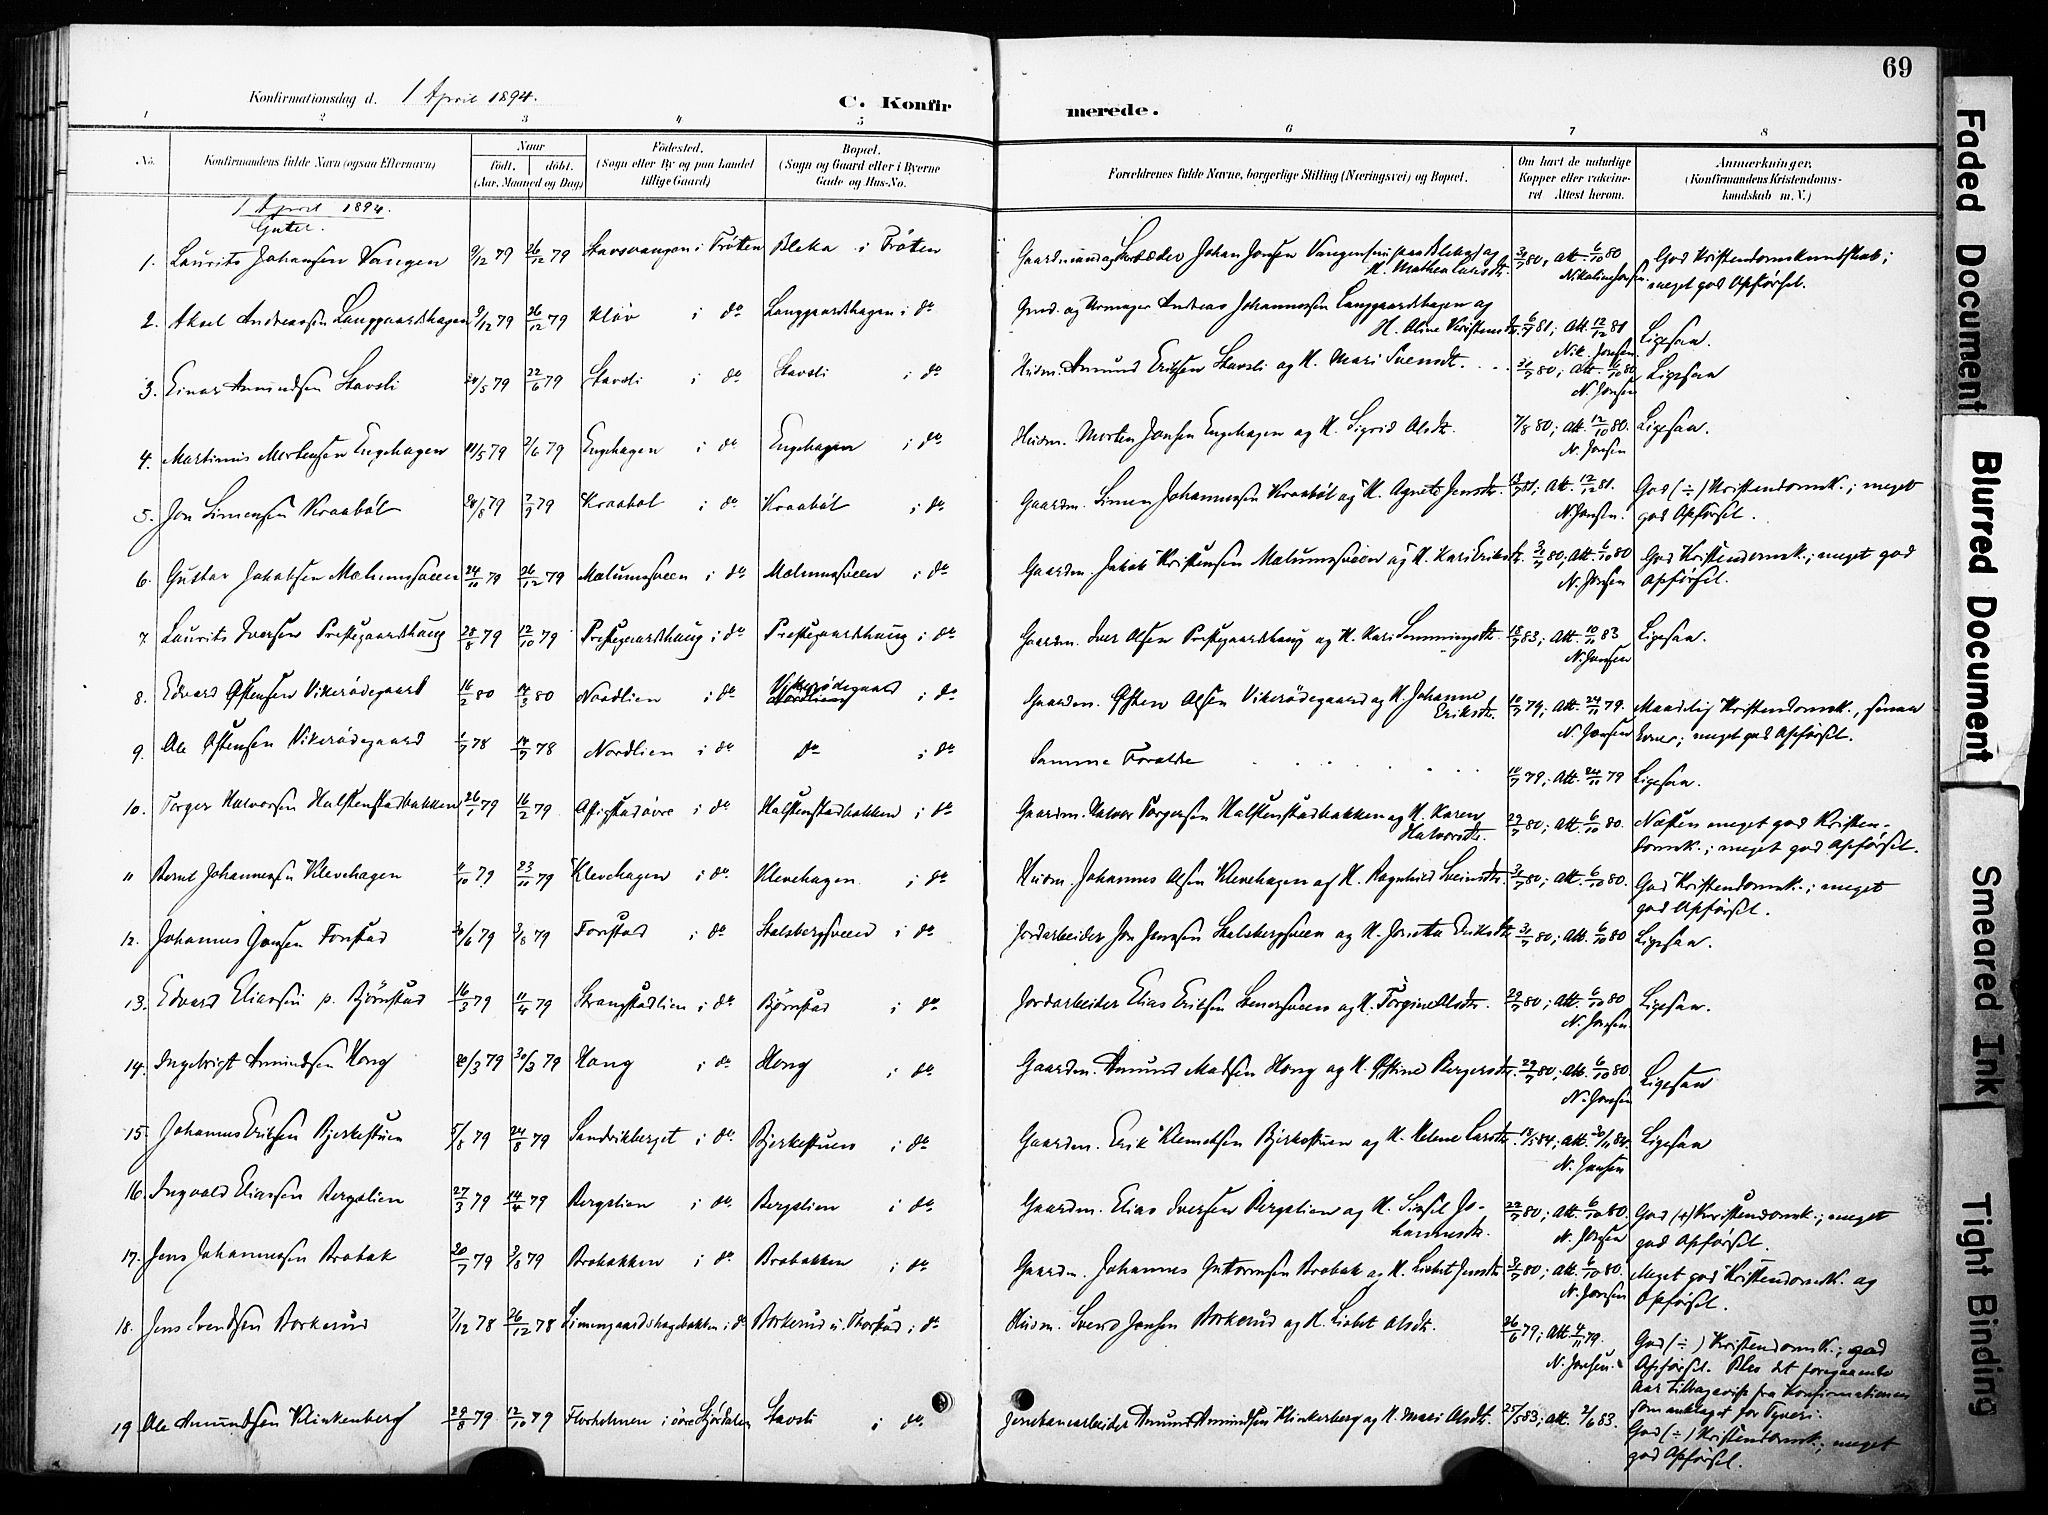 69
Konfirmationsdag d. 1 April 1894.
C. Konfirmerede.
1 2 3 4 5 6 7 8
No. Konfirmandens fulde Navn (ogsaa Efternavn) Naar født. døbt. (Aar, Maaned og Dag) Fødested. (Sogn eller By og paa Landet tillige Gaard) Bopæl. (Sogn og Gaard eller i Byerne Gade og Hus-No. Forældrenes fulde Navne, borgerlige Stilling (Næringsvei) og Bopæl. Om havt de naturlige Kopper eller vakcineret Attest herom. Anmærkninger, (Konfirmandens Kristendomskundskab m. V.)
1 April 1894.
Gutter.
1. Laurits Johansen Vangen 9/12 79 26/12 79 Stavsvangen i Tröten Bleka i Tröten Johan Jonsen 31/7 80, Att. 6/10 80 Nikoline Jonsen God Kristendomskundskab; meget god Opförsel.
2. Aksel Andreassen Langgaardshagen 9/12 79 26/12 79 Klöv i do Langgaardshagen i do Andreas Johannessen Langgaardshagen og H. Oline 6/7 81; Att. 12/12 81 Nik. Jonsen Ligesaa.
3. Einar Amundsen Stavsli 24/5 79 22/6 79 Stavsli i do Stavsli i do Husm. Amund Eriksen Stavsli og H. Mari Svensdt. 31/7 80; Att. 6/10 80 N. Jonsen Ligesaa
4. Martinius Mortensen Engehagen 11/5 79 2/6 79 Engehagen i do Engehagen i do Husm. Morten Jonsen Engehagen og H. Sigrid Olsdt. 7/8 80; Att. 12/10 80. N. Jonsen Ligesaa.
5. Jon Simensen Kraaböl 24/8 79 7/9 79 Kraaböl i do Kraaböl i do Gaardm. Simen Johannessen Kraaböl og H. Agnete Jensdt. 81, Att. 12/12 81. N. Jonsen. God (÷) Kristendomsk.; meget god Opförsel.
6. Gustav Jakobsen Mælumsveen 24/11 79 26/12 79 Mælumsveen i do Mælumsveen i do Gaardm. Jakob Kristensen Mælumsveen og H. Kari Eriksdt. 31/7 80; Att. 6/10 80 N. Jonsen God Kristendomsk.; meget god Opförsel.
7. Laurits Iversen Prestegaardshaug 28/8 79 12/10 79 Prestegaardshaug i do Prestegaardshaug i do Gaardm. Iver Olsen Prestegaardshaug og H. Kari 18/7 83; Att. 10/11 83 N. Jonsen Ligesaa.
8. Edvard Östensen Vikerödegaard 16/2 80 14/3 80 Nordlien i do Vikerödegaard i do Gaardm. Östen Olsen Vikerödegaard og H. Johanne Eriksdt. 10/7 79; Att. 24/11 79. N. Jonsen Maadelig Kristendomsk., smaa Evner; meget god Opförsel.
9. Ole Östensen Vikerödegaard 1/7 78 14/7 78 Nordlien i do do i do Samme Forældre 10/7 79; Att. 24/11 79 Ligesaa.
10. Torger Halvorsen Halstenstadbakken 26/1 79 16/2 79 i do Halstenstadbakken i do Gaardm. Halvor Torgersen Halstenstadbakken og H. Karen Halvorsdt. 29/7 80; Att. 6/10 80. Næsten meget god Kristendomsk.; meget god Opförsel.
11 Bernt Johannessen Klevehagen 11/10 79 23/11 79 Klevehagen i do Klevehagen i do Husm. Johannes Olsen Klevehagen og H. Ragnhild Sveinsdt. 31/7 80; Att. 6/10 80. God Kristendomsk.; meget god Opförsel.
12. Johannes Jonsen Forstad 30/6 79 3/8 79 Forstad i do Stalsbergsveen i do Jordarbeider Jon Jensen Stalsbergsveen og H. Eriksdt. 31/7 80; Att. 6/10 80 Ligesaa.
13. Edvard Eliassen p. Björnstad 16/3 79 11/4 79 Strangstadlien i do Björnstad i do Jordarbeider Elias Eriksen og H. Torgine Olsdt. 29/7 80; Att. 6/10 80 N. Jonsen Ligesaa.
14. Ingebrigt Amundsen Hong 20/3 79 30/3 79 Hong i do Hong i do Gaardm. Amund Madsen Hong og H. Östine Bergersdt. 29/7 80; Att. 6/10 80 N. Jonsen Ligesaa
15. Johannes Eriksen Bjerkestuen 5/8 79 24/8 79 Sandvikberget i do Bjerkestuen i do Gaardm. Erik Klemetsen Bjerkestuen og H. Helene Larsdt. 18/5 84; Att. 30/11 84. N. Jonsen Ligesaa
16. Ingvald Eliassen Bergslien 27/3 79 14/4 79 Bergslien i do Bergslien i do Gaardm. Elias Iversen Bergslien og H. Sissil Johannesdt. 22/7 80; Att. 6/10 80. N. Jonsen God (+) Kristendomsk.; meget god Opförsel.
17. Jens Johannessen Brobak 20/7 79 3/8 79 Brobakken i do Brobakken i do Gaardm. Johannes Guttormsen Brobak og H. Lisbet Jensdt. 31/7 80; Att. 6/10 80. N. Jonsen Meget god Kristendomsk. og Opförsel.
18. Jens Svendsen Borkerud 7/12 78 26/12 78 Simengaardshagebakken i do Borkerud u. Forstad i do Husm. Svend Jensen Borkerud og H. Lisbet Olsdt. 26/6 79; Att. 4/11 79. N. Jonsen. God (÷) Kristendomsk.; god Opförsel. Blev det foregaaende Aar tilbagevist fra Konfirmationen som anklaget for Tyveri.
19 Ole Amundsen Klinkenberg 29/8 79 12/10 79 Floholmen i övre Stjördalen Stavsli i do. Jernbanearbeider Amund Amundsen Klinkenberg og H. Mari Olsdt. 25/5 83; Att. 2/6 83. God (÷) Kristendomsk.; meget god Opförsel.
Faded Document
Blurred Document
Smeared Ink
Tight Binding